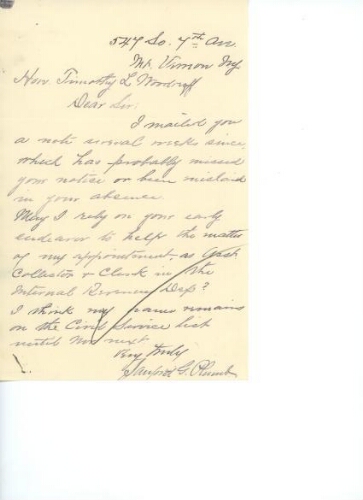 547 So. 7th Av.
Mt Vernon NY
Hon. Timothy L Woodruff
Dear Sir:
I mailed you
a note several weeks since
which has probably missed
your notice or been mislaid
in your absence.
May I rely on your early
endeavor to help the matter
of my appointment as
Collector & Clerk in the
Internal Revenue Dep?
I think my name remains
on the Civil Service list
until Nov next
Very truly
Sanford G. Plumb